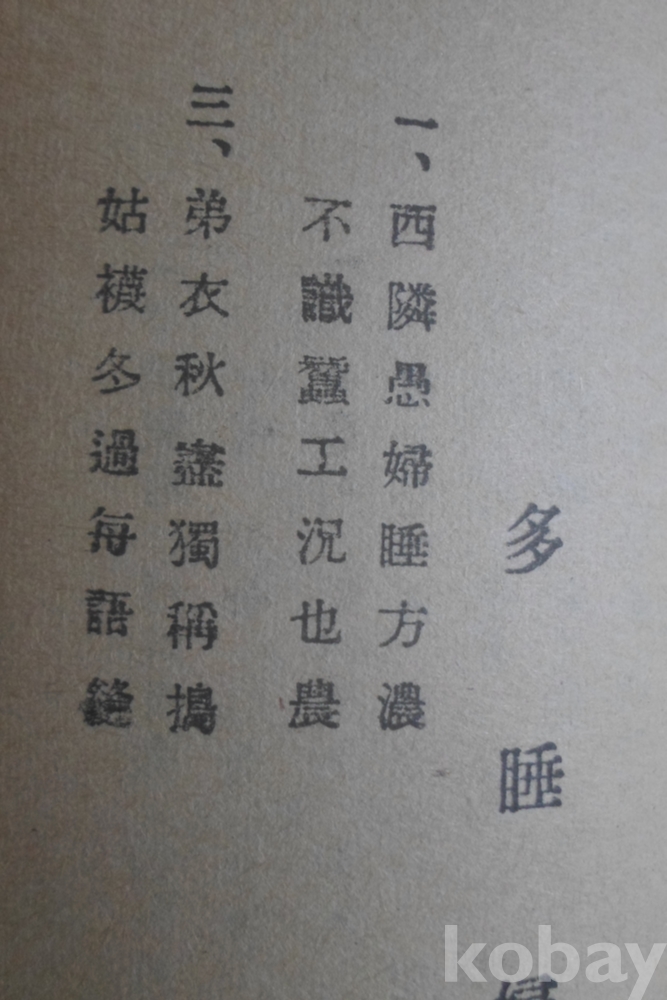 多睡
一、西隣愚婦睡方濃
不識蠶工況也農
三、弟衣秋盡獨稱搗
姑襪冬過每語縫
kobay